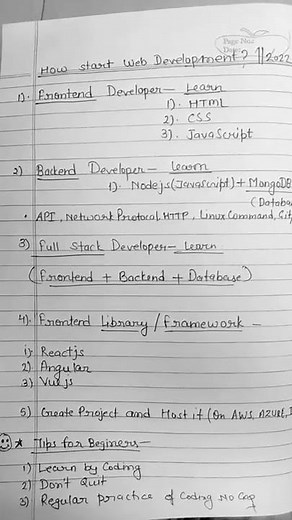 Page No.:
Date:
How start Web Development? 11/2022
1). Frontend Developer— Learn
1). HTML
2). CSS
3). JavaScript
2) Backend Developer — learn
1). Nodejs(JavaScript) + MongoDB
(Databa
• API, Network Protocal, HTTP, Linux Command, Git
3) Full Stack Developer— Learn
(Frontend + Backend + Database)
4). Frontend Library / framework —
1) Reactjs
2) Angular
3) Vuejs
5) Create Project and Host it (On AWS, AZURE,
★ Tips for Beginers—
1) Learn by Coding
2) Dont Quit
3) Regular practice of Coding No Cap